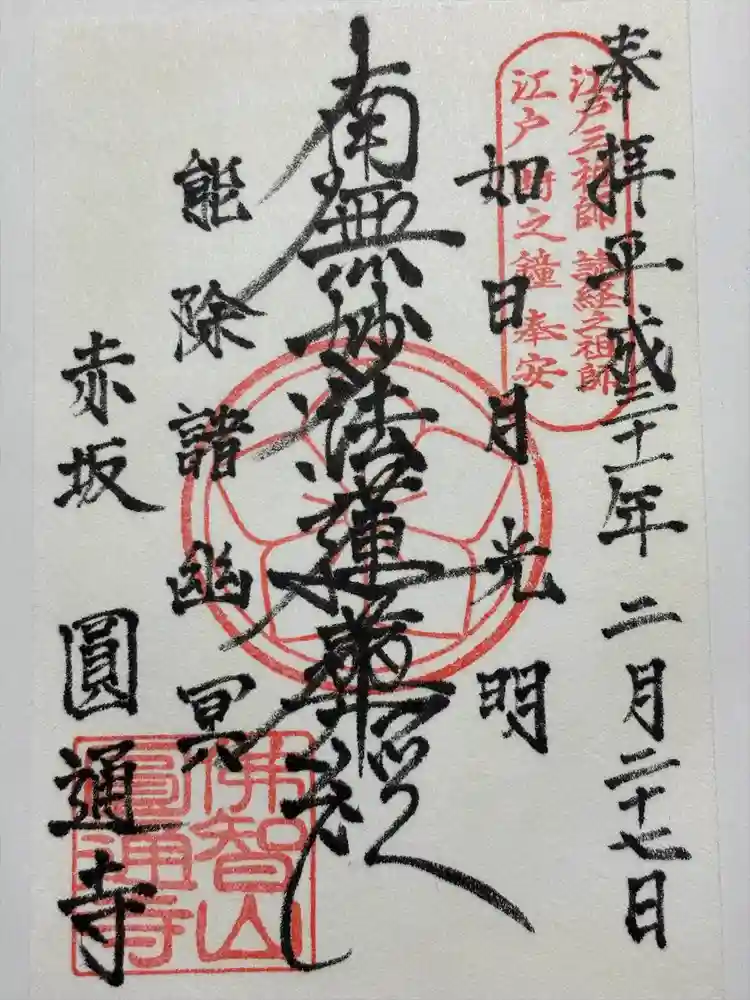 奉拝平成三十一年二月二十七日
江戸三祖師 読経之祖師
江戸時之鐘奉安
如日月光明
南無妙法蓮華経
能除諸幽冥
赤坂 圓通寺
佛智山
圓通寺